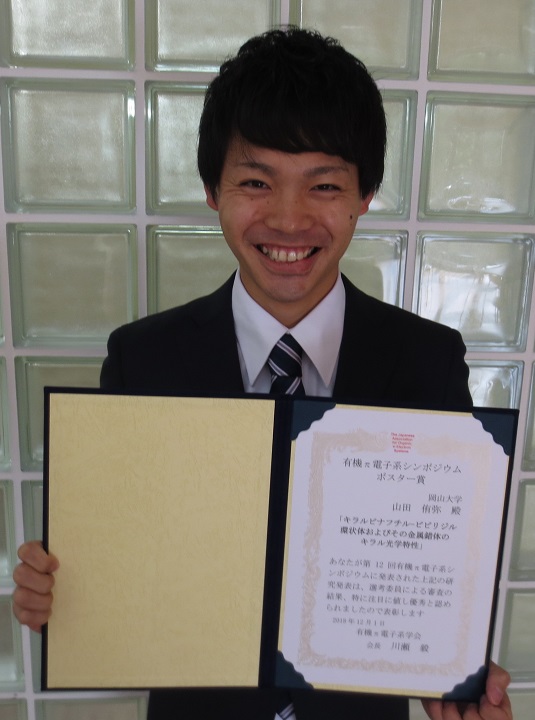 The Japanese
Association
for Organic
π-Electron
Systems
有機π電子系シンポジウム
ポスター賞
岡山大学
山田　侑弥　殿
「キラルビナフチル-ビピリジル
環状体およびその金属錯体の
キラル光学特性」
あなたが第 12 回有機π電子系シ
ンポジウムに発表された上記の研
究発表は、選考委員による審査の
結果、特に注目に値し優秀と認め
られましたので表彰します
2018 年 12 月 1 日
有機π電子系学会
会長　川瀬　毅